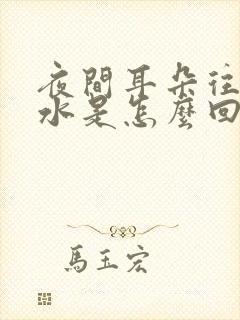 夜間耳朵往
水是怎麼回
馬玉宏